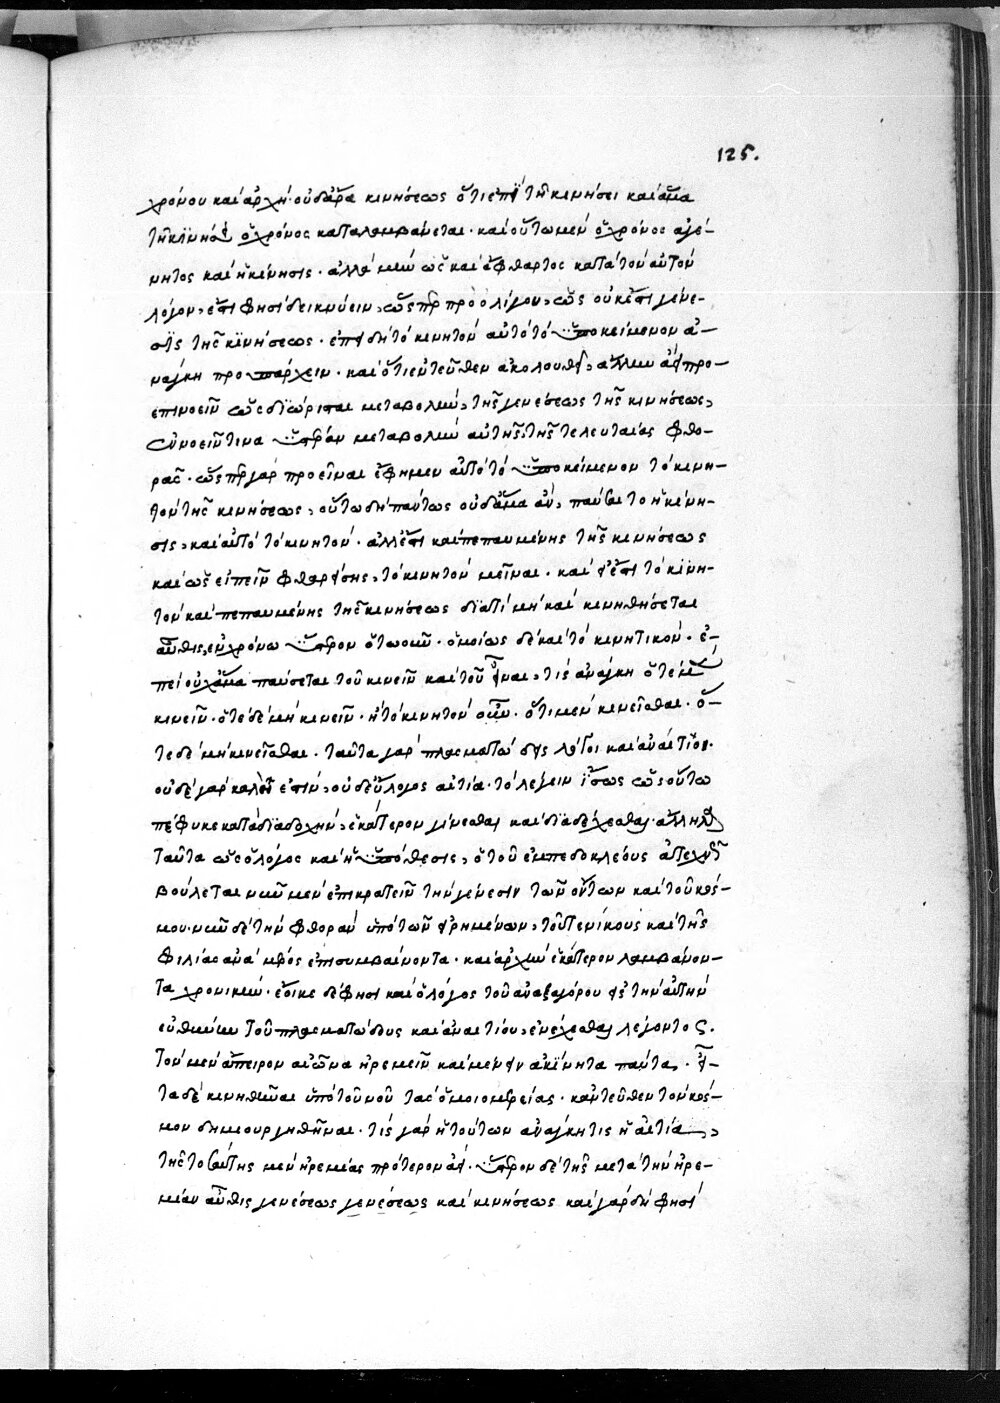 125.
χρόνου καὶ ἀρχή· οὐδ' ἄρα κινήσεως ὅτι ἐπὶ τῇ κινήσει καὶ ἅμα
τῇ κινήσει ὁ χρόνος καταλαμβάνεται· καὶ οὕτω μὲν ὁ χρόνος ἀγέ-
νητος καὶ ἡ κίνησις· ἀλλὰ μὴν ὡς καὶ ἄφθαρτος κατὰ τὸν αὐτὸν
λόγον, ἔτι φησὶ δεικνύειν, ὥσπερ πρὸ ὀλίγου, ὡς οὐκ ἔστι γένε-
σις τῆς κινήσεως· ἐπειδὴ τὸ κινητὸν αὐτὸ τὸ ὑποκείμενον ἀ-
νάγκη προυπάρχειν· καὶ ὅτι ἐντεῦθεν ἀκολουθεῖ, ἄλλην ἀεὶ προ-
επινοεῖν ὡς διώρισται μεταβολὴν, τῆς γενέσεως τῆς κινήσεως,
συνοεῖν τινα ὑστέραν μεταβολὴν αὐτῆς, τῆς τελευταίας φθο-
ρᾶς· ὥσπερ γὰρ προεῖναι ἔφημεν αὐτὸ τὸ ὑποκείμενον τὸ κινη-
τὸν τῆς κινήσεως, οὕτω δὴ πάντως οὐδ' ἅμα ἂν, παύσαιτο ἡ κίνη-
σις, καὶ αὐτὸ τὸ κινητόν· ἀλλ' ἔστι καὶ πεπαυμένης τῆς κινήσεως
καὶ ὡς εἰπεῖν φθαρείσης, τὸ κινητὸν μεῖναι· καὶ εἰ ἔστι τὸ κινη-
τὸν καὶ πεπαυμένης τῆς κινήσεως διατί μὴ καὶ κινηθήσεται
αὖθις, ἐν χρόνω ὕστερον ὁτωοῦν· ὁμοίως δὲ καὶ τὸ κινητικόν· ἐ-
πεὶ οὐχ ἅμα παύσεται τοῦ κινεῖν καὶ τοῦ εἶναι, τίς ἀνάγκη ὁτὲ μὲν
κινεῖν· ὁτὲ δὲ μὴ κινεῖν· ἢ τὸ κινητὸν οὖν· ὁτὲ μὲν κινεῖσθαι· ὁ-
τὲ δὲ μὴ κινεῖσθαι· ταῦτα γὰρ πλασματώδης λόγοι καὶ ἀναίτιοι·
οὐδὲ γὰρ καλὸν ἐστὶν, οὐδ' εὔλογος αἰτία· τὸ λέγειν ἴσως ὡς οὕτω
πέφυκε κατὰ διαδοχὴν, ἑκάτερον γίνεσθαι καὶ διαδέχεσθαι ἄλληλα
ταῦτα ὡς ὁ λόγος καὶ ἡ ὑπόθεσις, ὁ τοῦ ἐμπεδοκλέους ἀτεχνῶς
βούλεται νῦν μὲν ἐπικρατεῖν τὴν γένεσιν τῶν ὄντων καὶ τοῦ κόσ-
μου· νῦν δὲ τὴν φθορὰν ὑπὸ τῶν εἰρημένων, τοῦτε νίκους καὶ τῆς
φιλίας ἀνὰ μέρος ἐπισυμβαίνοντα· καὶ ἀρχὴν ἑκάτερον λαμβάνον-
τα χρονικὴν· ἔοικε δέ φησι καὶ ὁ λόγος τοῦ ἀναξαγόρου εἰς τὴν αὐτὴν
εὐθύνην τοῦ πλασματώδους καὶ ἀναιτίου, ἐνέχεσθαι λέγοντος.
τὸν μὲν ἄπειρον αἰῶνα ἠρεμεῖν καὶ μένειν ἀκίνητα πάντα· εἶ-
τα δὲ κινηθῆναι ὑπὸ τοῦ νοῦ τὰς ὁμοιομερείας· κἀντεῦθεν τὸν κόσ-
μον δημιουργηθῆναι· τίς γὰρ ἡ τούτων ἀνάγκη τις ἢ αἰτία,
τῆς τοιαύτης μὲν ἠρεμίας πρότερον ἀεί· ὕστερον δὲ τῆς μετὰ τὴν ἠρε-
μίαν αὖθις γενέσεως γενέσεως καὶ κινήσεως καὶ γὰρ δή φησι